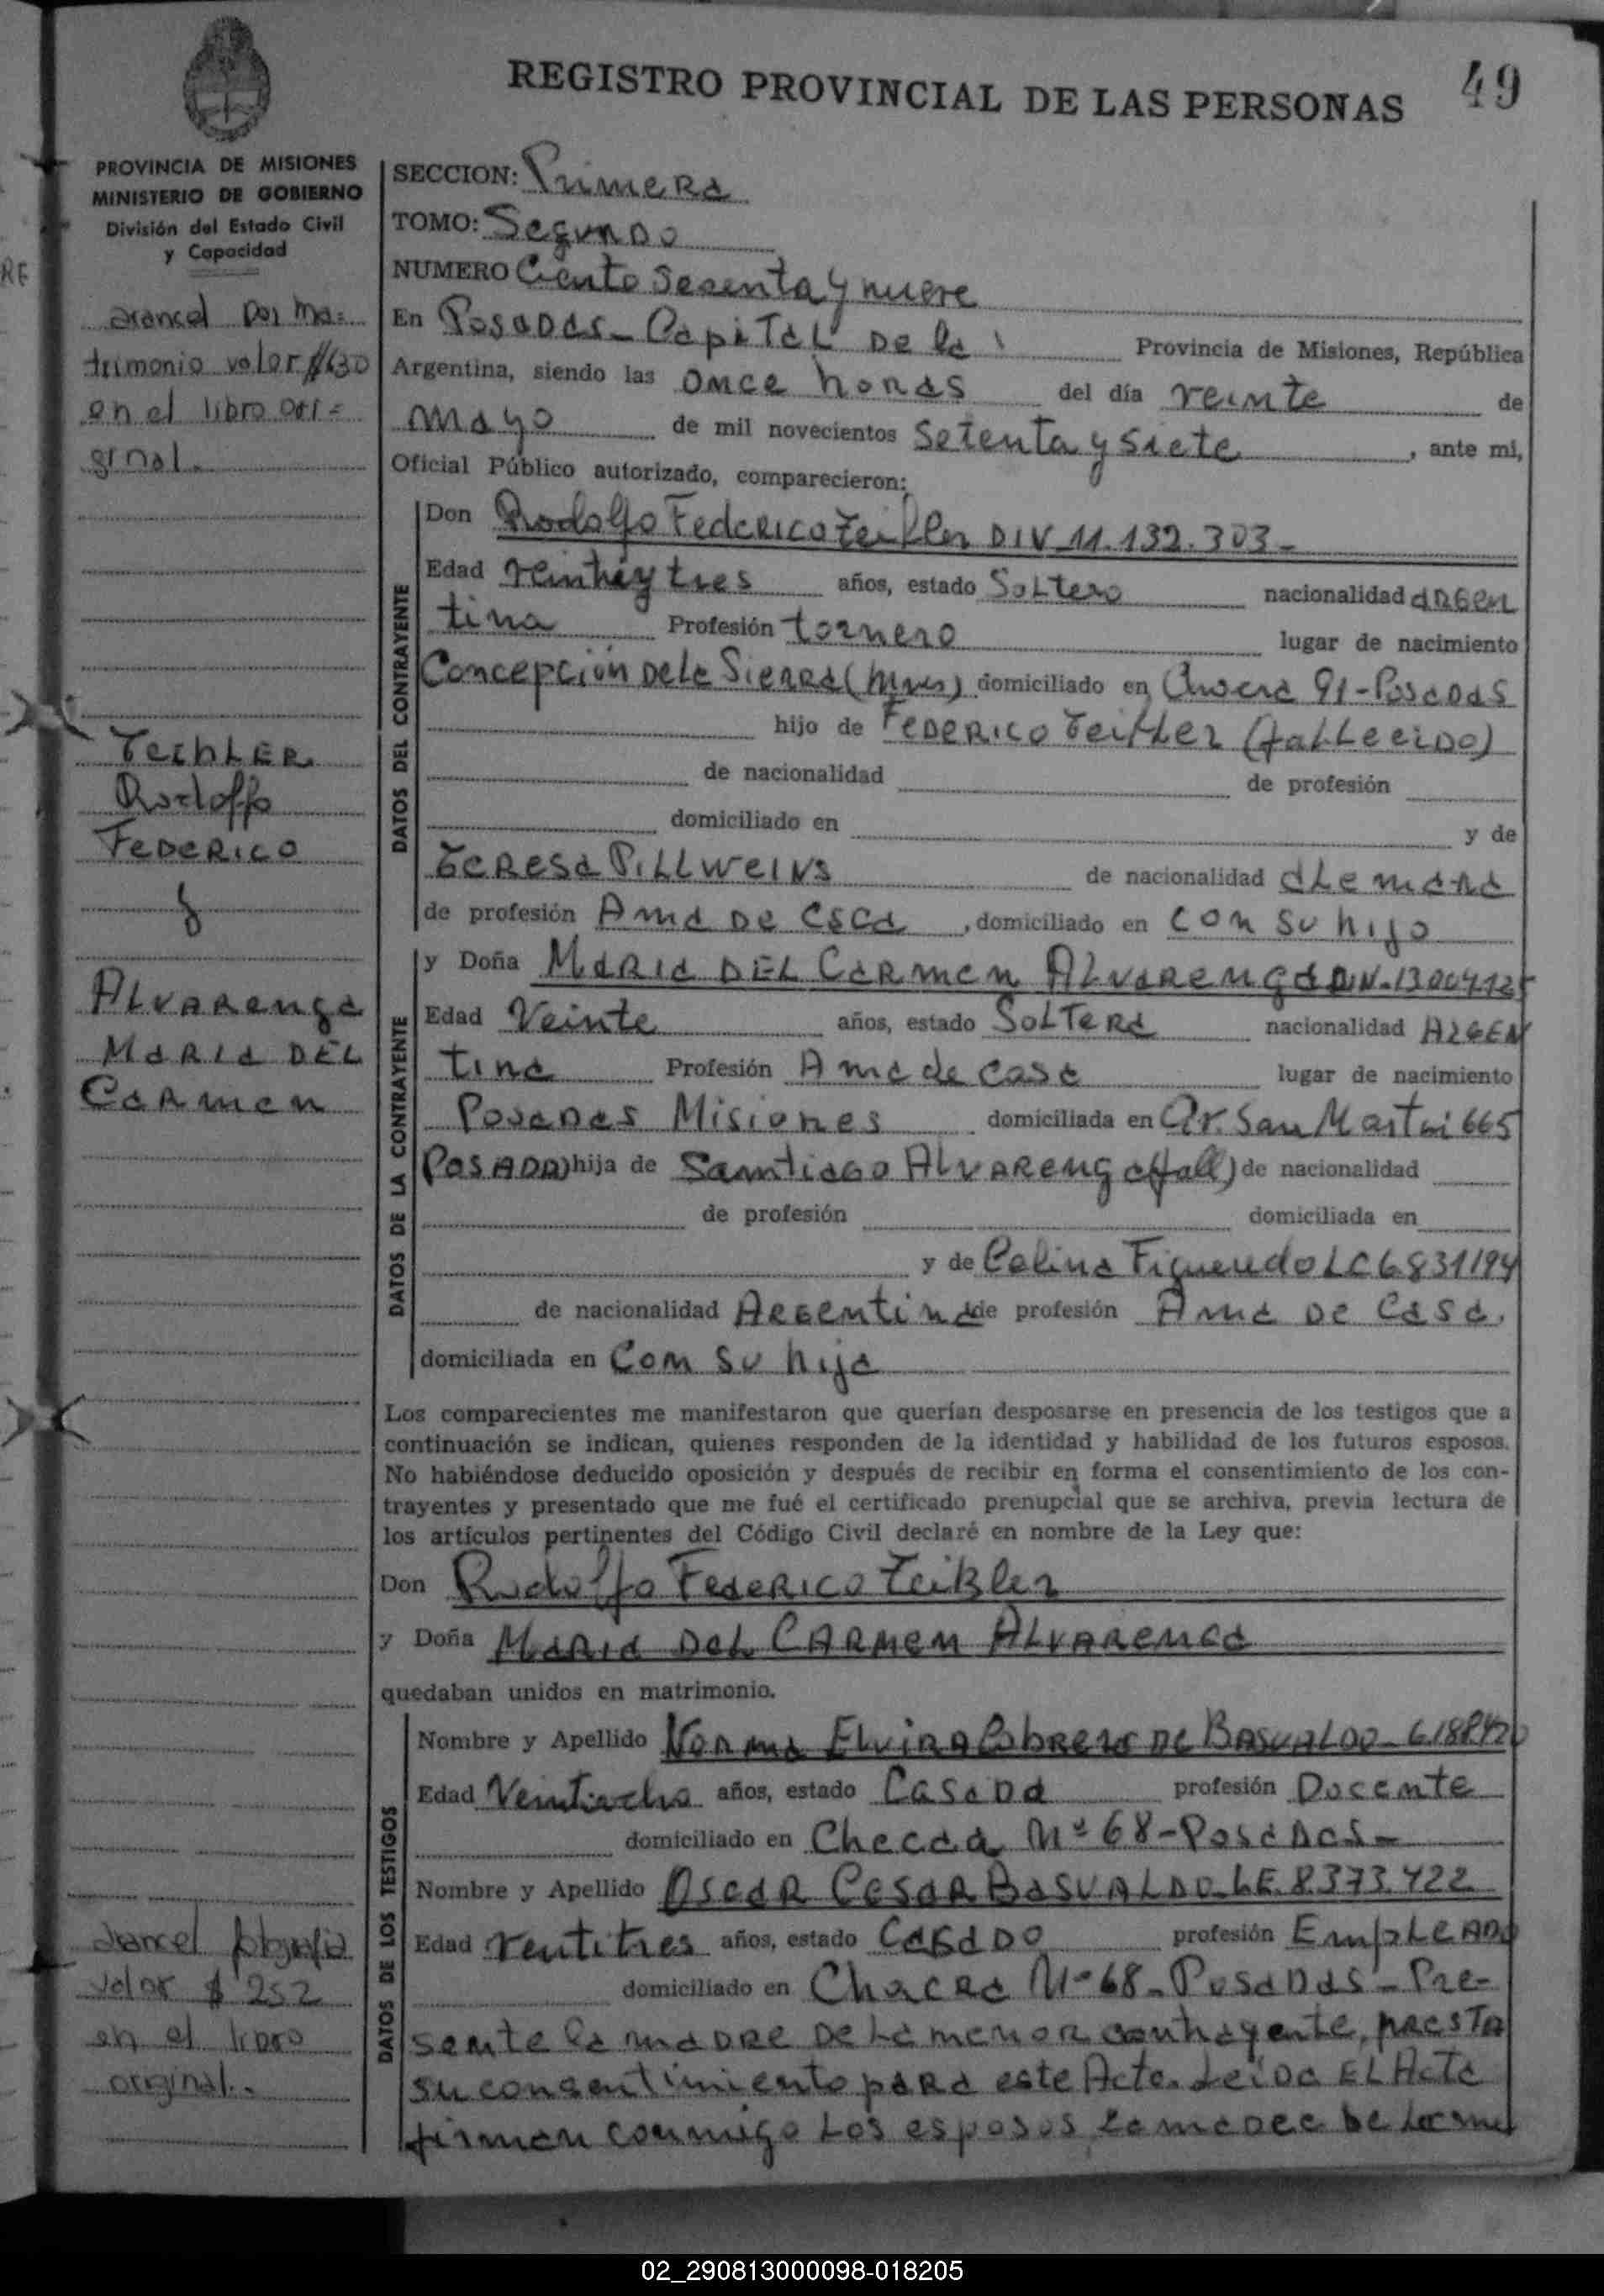 REGISTRO PROVINCIAL DE LAS PERSONAS
49
PROVINCIA DE MISIONES
MINISTERIO DE GOBIERNO
División del Estado Civil
y Capacidad
arancel por ma=
trimonio valor $630
en el libro ori=
ginal.
TeihLER
Rodolfo
FEDERICO
y
ALVARenga
MARIA DEL
CARmen
arancel fotografia
valor $ 252
en el libro
original.
SECCION: Primera
TOMO: Segundo
NUMERO Ciento sesenta y nueve
En Posadas - Capital De la Provincia de Misiones, República
Argentina, siendo las once horas del día veinte de
mayo de mil novecientos setenta y siete, ante mi,
Oficial Público autorizado, comparecieron:
DATOS DEL CONTRAYENTE
Don Rodolfo Federico Teikler DIV 11.132.303-
Edad veintiytres años, estado Soltero nacionalidad argen
tina Profesión tornero lugar de nacimiento
Concepción De la Sierra (Mnes) domiciliado en 91 - Posadas
hijo de FEDERICO Teikler (falLecido)
de nacionalidad de profesión
domiciliado en y de
TERESA PILLWEINS de nacionalidad aLemana
de profesión Ama De casa, domiciliado en con su hijo
DATOS DE LA CONTRAYENTE
y Doña MARIA DEL CARmen ALVARENGA DIV. 13004125
Edad Veinte años, estado SOLTERA nacionalidad ARGEN
tina Profesión Ama de casa lugar de nacimiento
Posadas Misiones domiciliada en Av. San Martin 665
(POSADA) hija de Santiago ALVARENGA (fall) de nacionalidad
de profesión domiciliada en
y de Celina Figueredo LC 6831194
de nacionalidad Argentina de profesión Ama De Casa.
domiciliada en Con su hija
Los comparecientes me manifestaron que querían desposarse en presencia de los testigos que a
continuación se indican, quienes responden de la identidad y habilidad de los futuros esposos.
No habiéndose deducido oposición y después de recibir en forma el consentimiento de los con-
trayentes y presentado que me fué el certificado prenupcial que se archiva, previa lectura de
los artículos pertinentes del Código Civil declaré en nombre de la Ley que:
Don Rodolfo FEDERICO Teikler
y Doña MARIA DEL CARMEN ALVARENGA
quedaban unidos en matrimonio.
DATOS DE LOS TESTIGOS
Nombre y Apellido Norma ELVIRA DE BASUALDO -
Edad Veintiocho años, estado Casada profesión Docente
domiciliado en Chacra Nº 68 - Posadas -
Nombre y Apellido OSCAR CESAR BASUALDO LE. 8.373.422
Edad ventitres años, estado CASADO profesión EmpLEADO
domiciliado en Chacra Nº 68 - Posadas - Pre-
sente la madre De La menor contrayente, presta
su consentimiento para este Acto. Leida EL Acta
firman conmigo Los esposos La madre De La me
02_290813000098-018205